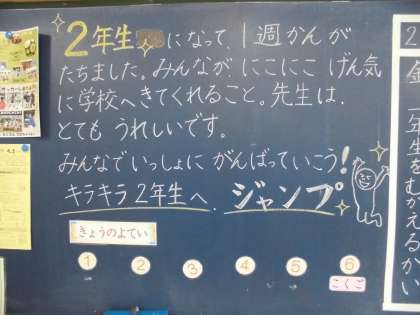 2年生になって、1週かんが
たちました。みんなが、にこにこ げん気
に学校へきてくれること。先生は、
とても うれしいです。
みんなでいっしょに がんばっていこう!
キラキラ2年生へ、ジャンプ
きょうのよてい
① ② ③ ④ ⑤ ⑥
こくご
年生をむかえるかい